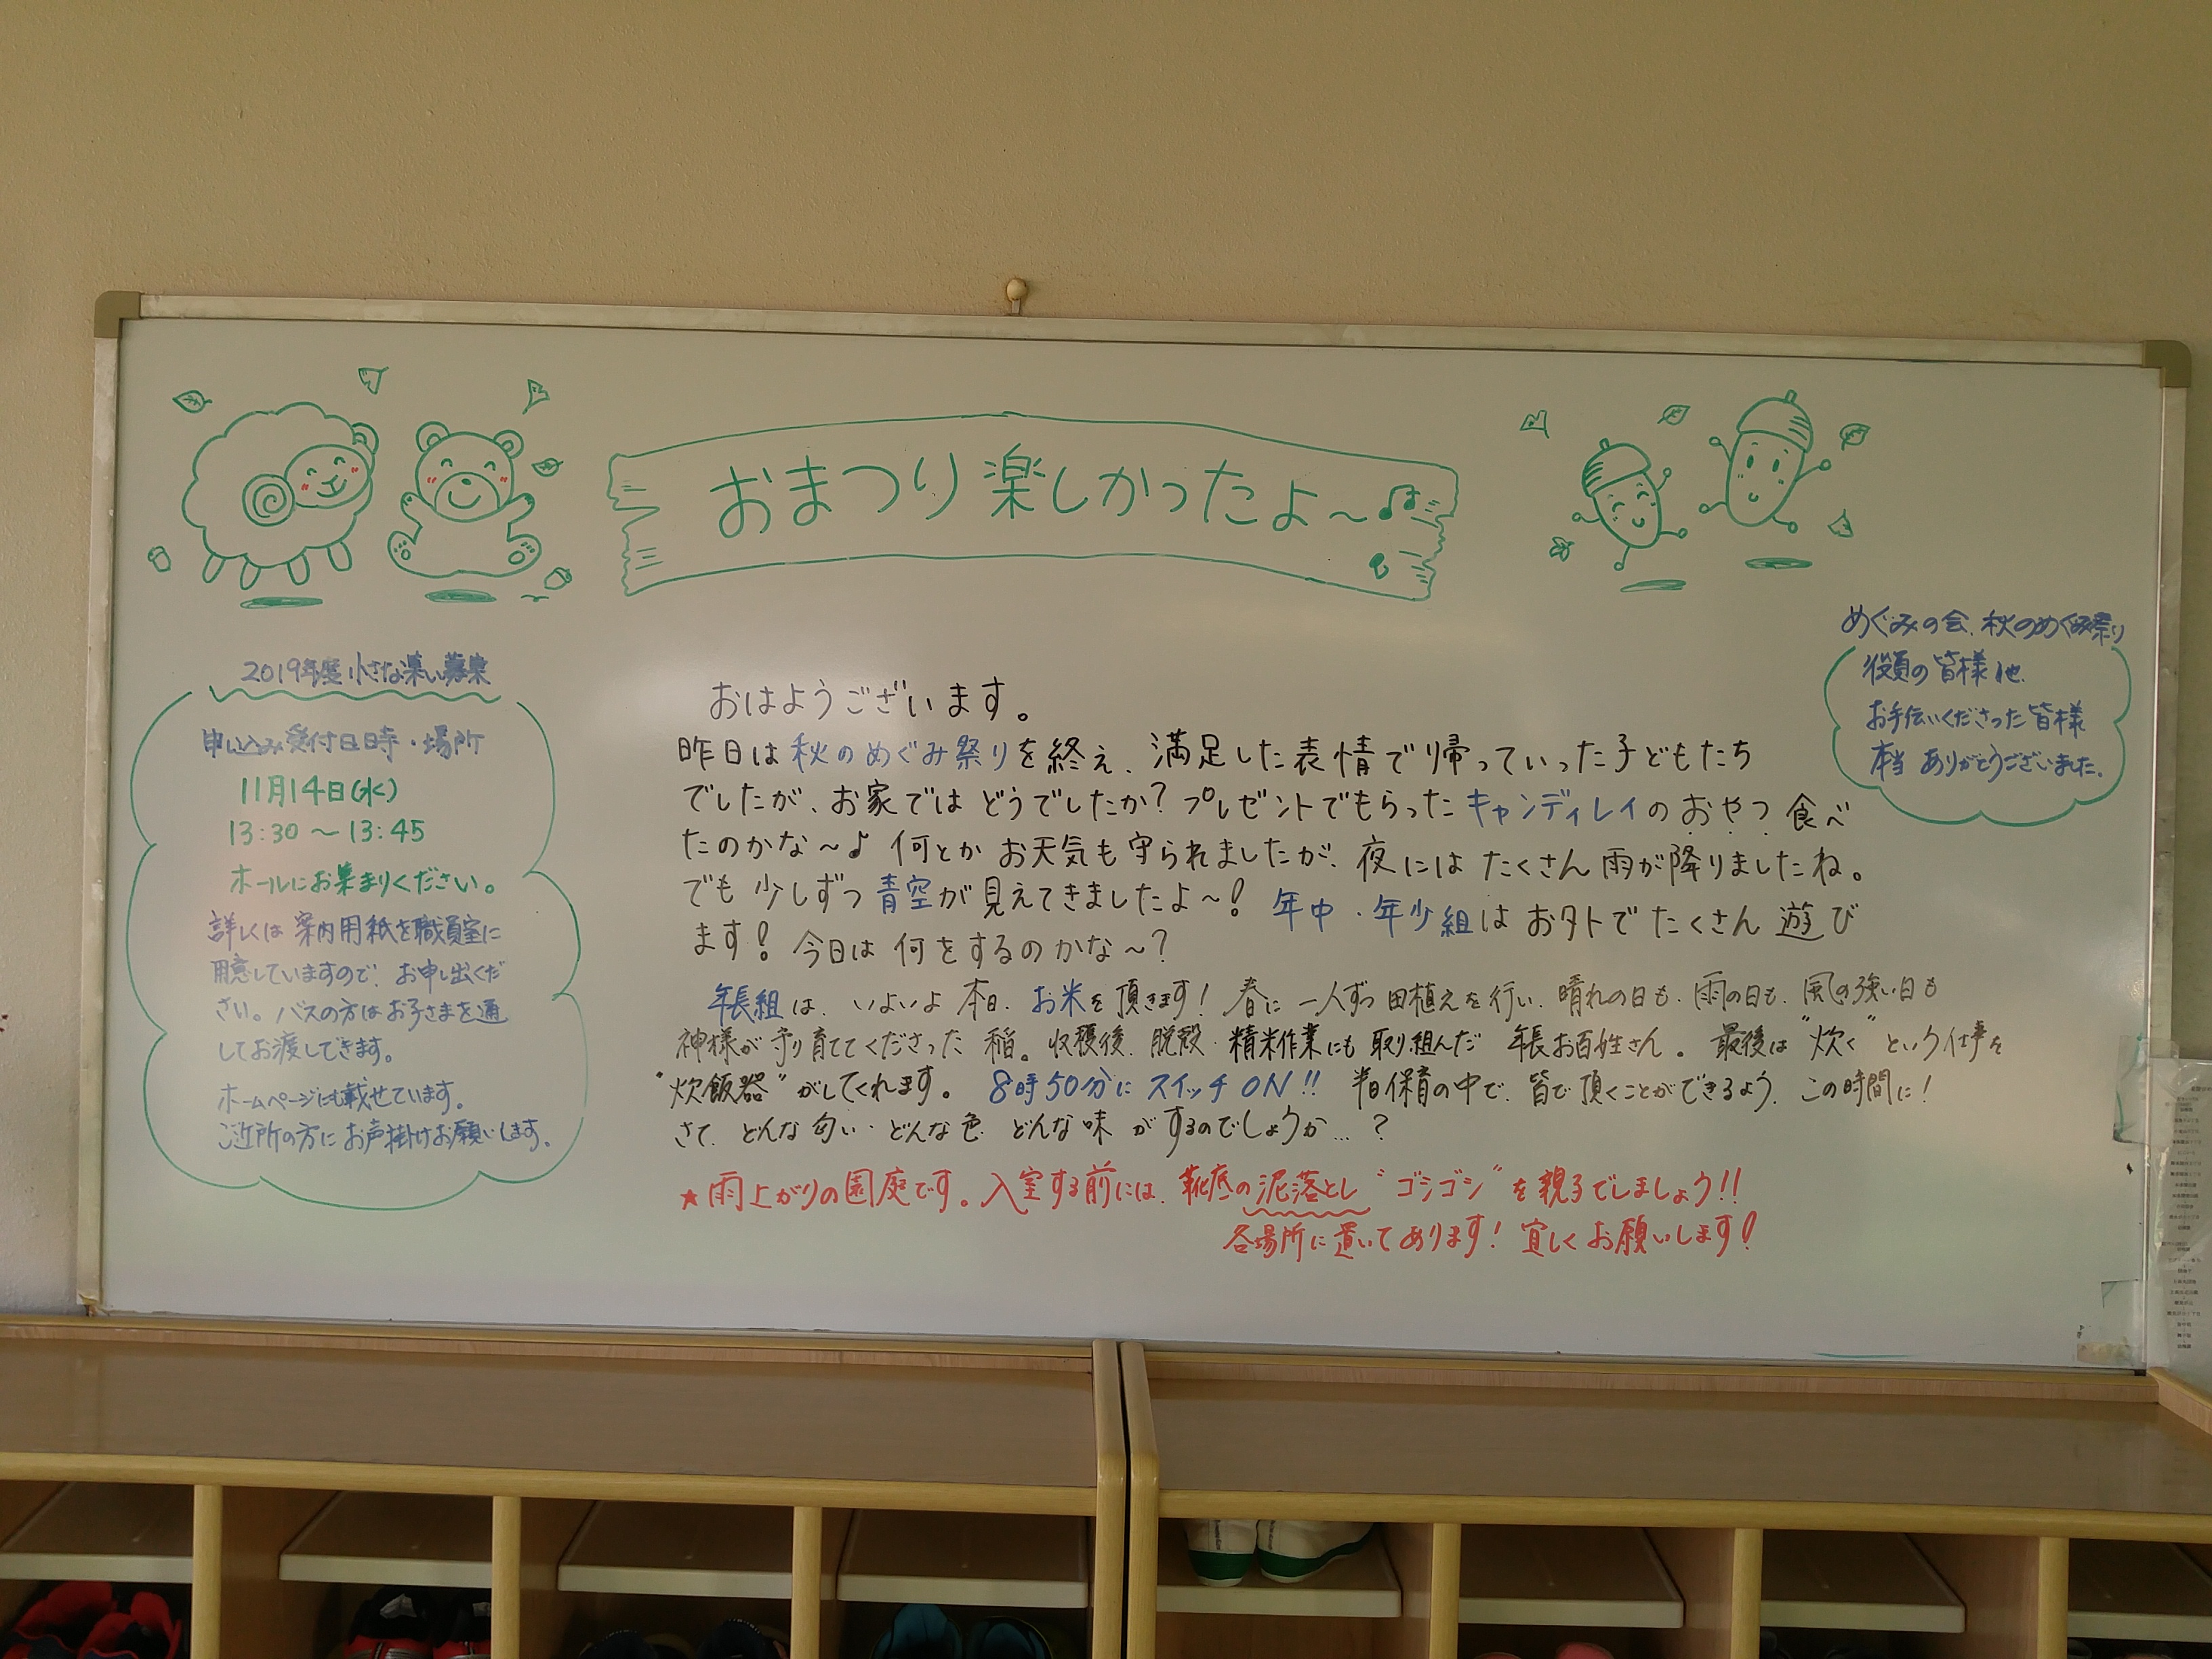 おまつり楽しかったよ～♪
2019年度 小さな集い募集
申し込み受付日時・場所
11月14日(水)
13:30 ～ 13:45
ホールにお集まりください。
詳しくは案内用紙を職員室に
用意していますので、お申し出くだ
さい。バスの方はお子さまを通
してお渡しできます。
ホームページにも載せています。
ご近所の方にお声掛けお願いします。
おはようございます。
昨日は秋のめぐみ祭りを終え、満足した表情で帰っていった子どもたち
でしたが、お家ではどうでしたか？プレゼントでもらったキャンディレイのおやつ食べ
たのかな～♪ 何とかお天気も守られましたが、夜にはたくさん雨が降りましたね。
でも少しずつ青空が見えてきましたよ～！ 年中・年少組はお外でたくさん遊び
ます！ 今日は何をするのかな～？
年長組は、いよいよ本日、お米を頂きます！春に一人ずつ田植えを行い、晴れの日も、雨の日も、風の強い日も
神様が守り育ててくださった稲。収穫後、脱穀・精米作業にも取り組んだ年長お百姓さん。最後は“炊く”という仕事を
“炊飯器”がしてくれます。8時50分にスイッチON!! 半日保育の中で、皆で頂くことができるよう、この時間に！
さて、どんな匂い・どんな色・どんな味がするのでしょうか…？
★雨上がりの園庭です。入室する前には、靴底の泥落とし“ゴシゴシ”を親子でしましょう!!
各場所に置いてあります！宜しくお願いします！
めぐみの会、秋のめぐみ祭り
役員の皆様他、
お手伝いくださった皆様
本当ありがとうございました。